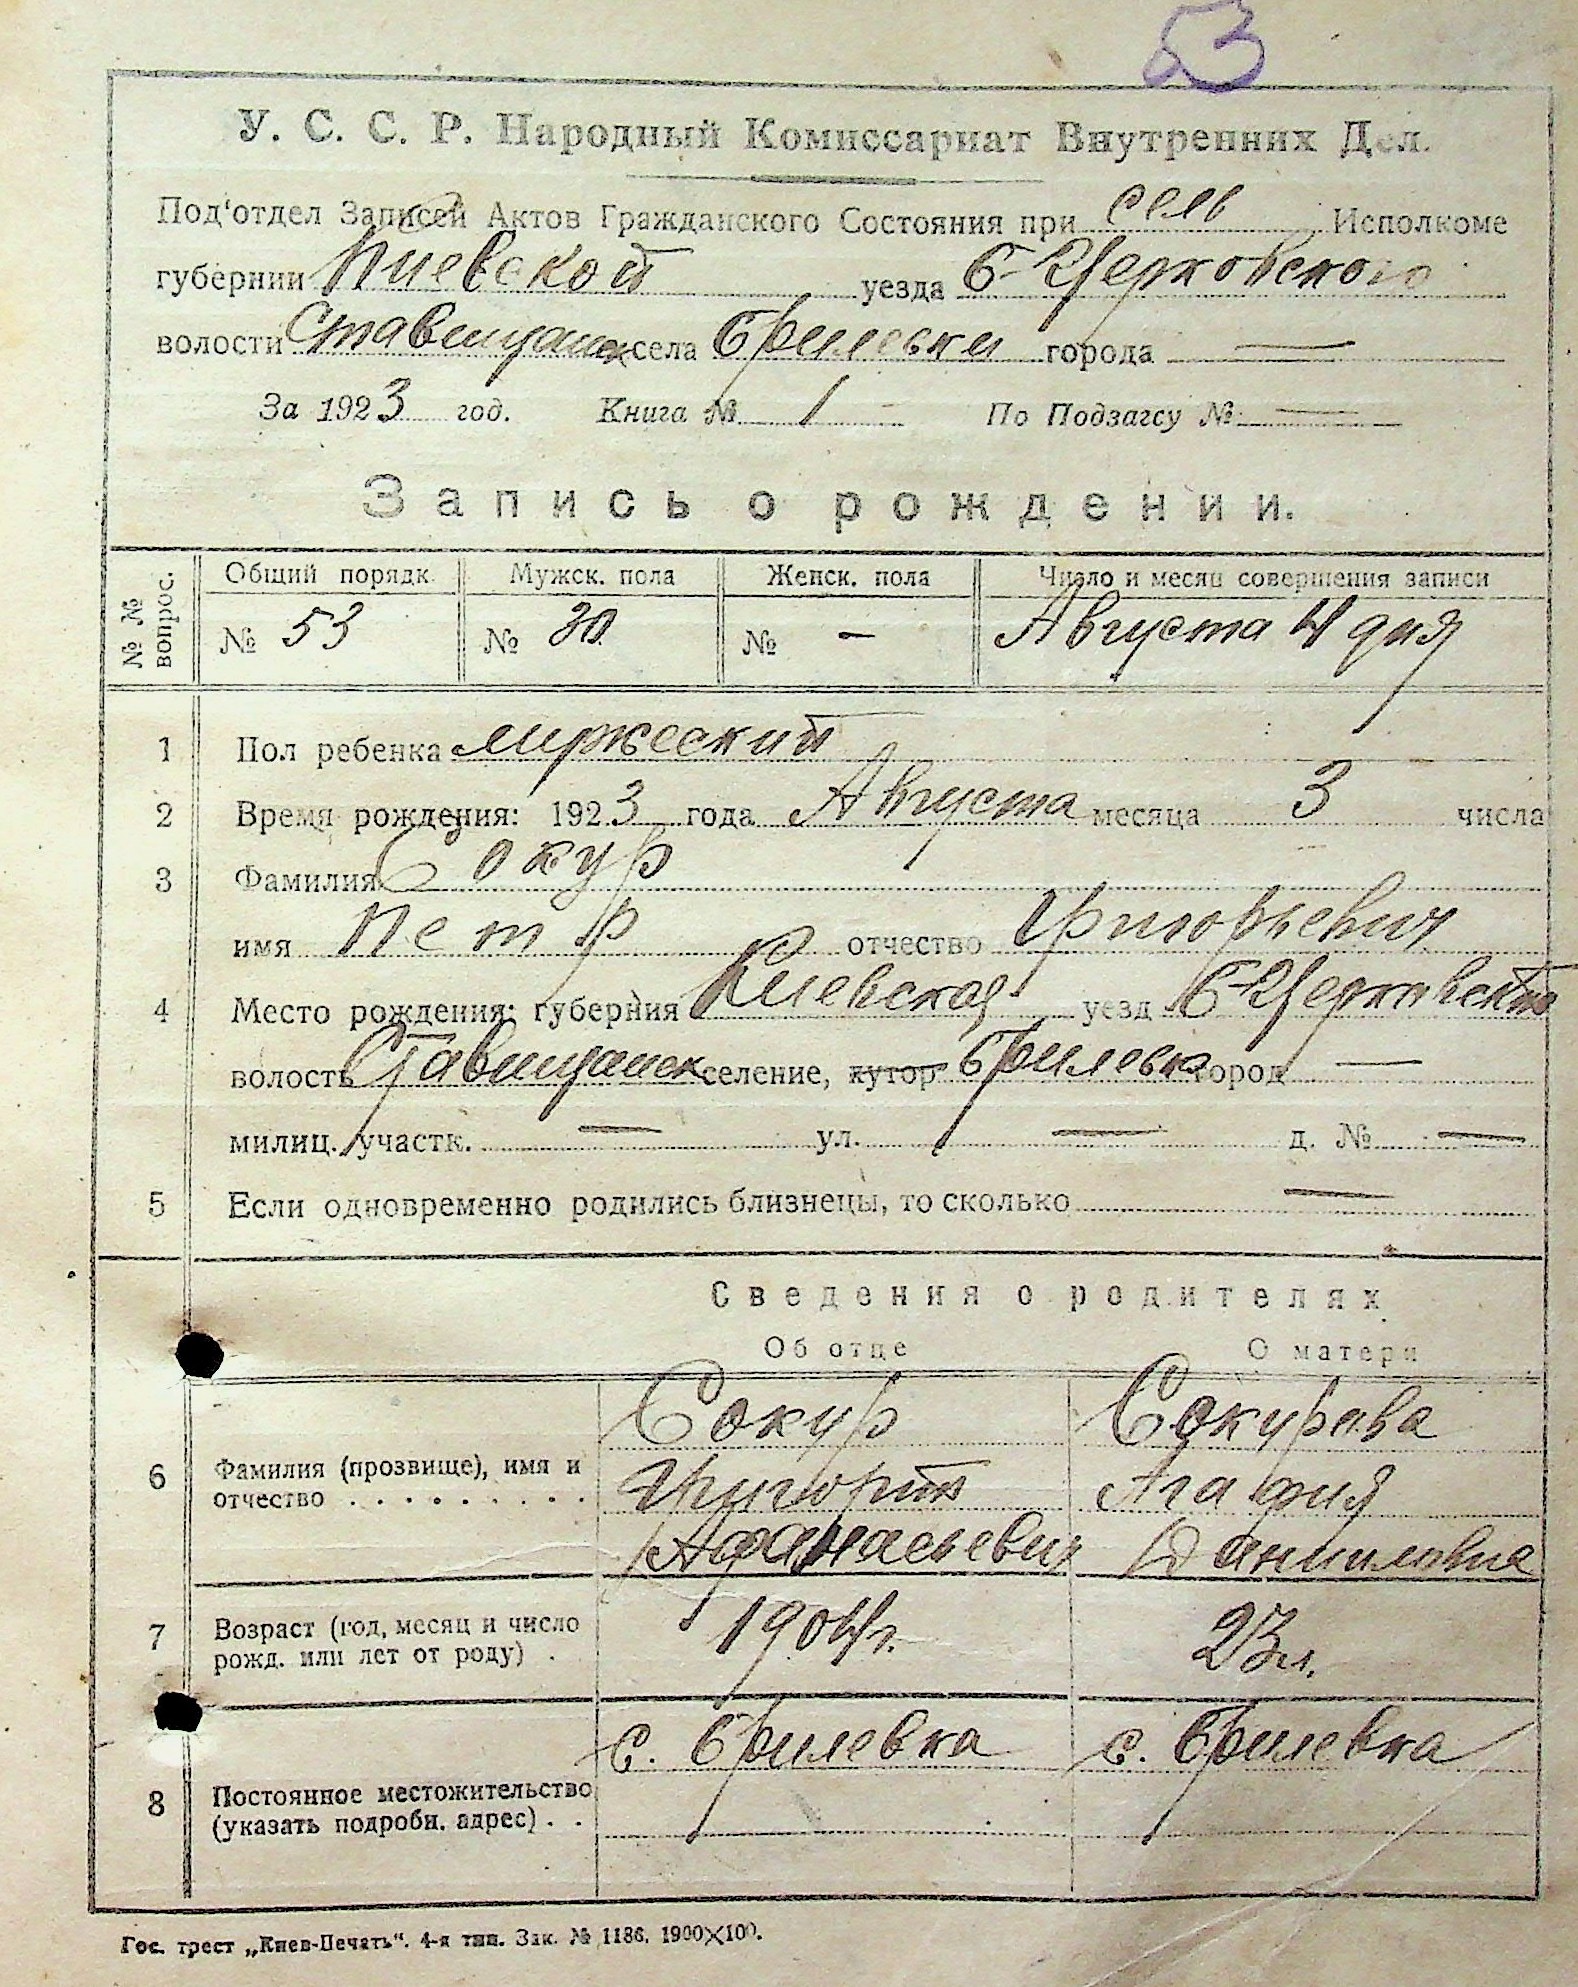 53
У. С. С. Р. Народный Комиссариат Внутренних Дел.
Под'отдел Записей Актов Гражданского Состояния при сель Исполкоме
губернии Киевской уезда Б-Церковского
волости Ставищанск села Брилевки города —
За 1923 год. Книга № 1 По Подзагсу № —
Запись о рождении.
№ № вопрос. Общий порядк. Мужск. пола Женск. пола Число и месяц совершения записи
№ 53 № 30 № - Августа 4 дня
1 Пол ребенка мужеский
2 Время рождения: 1923 года Августа месяца 3 числа
3 Фамилия Сокур
имя Петр отчество Григорьевич
4 Место рождения: губерния Киевская уезд Б-Церковский
волость Ставищанск селение, хутор Брилевка город —
милиц. участк. — ул. — д. № —
5 Если одновременно родились близнецы, то сколько —
Сведения о родителях
Об отце О матери
Сокур Сокурава
6 Фамилия (прозвище), имя и Григорий Агафия
отчество . . . . . . . . . Афанасьевич Данииловна
7 Возраст (год, месяц и число 1904г. 23л.
рожд. или лет от роду) .
с. Брилевка с. Брилевка
8 Постоянное местожительство
(указать подробн. адрес) . .
Гос. трест „Киев-Печать“. 4-я тип. Зак. № 1186. 1900×100.